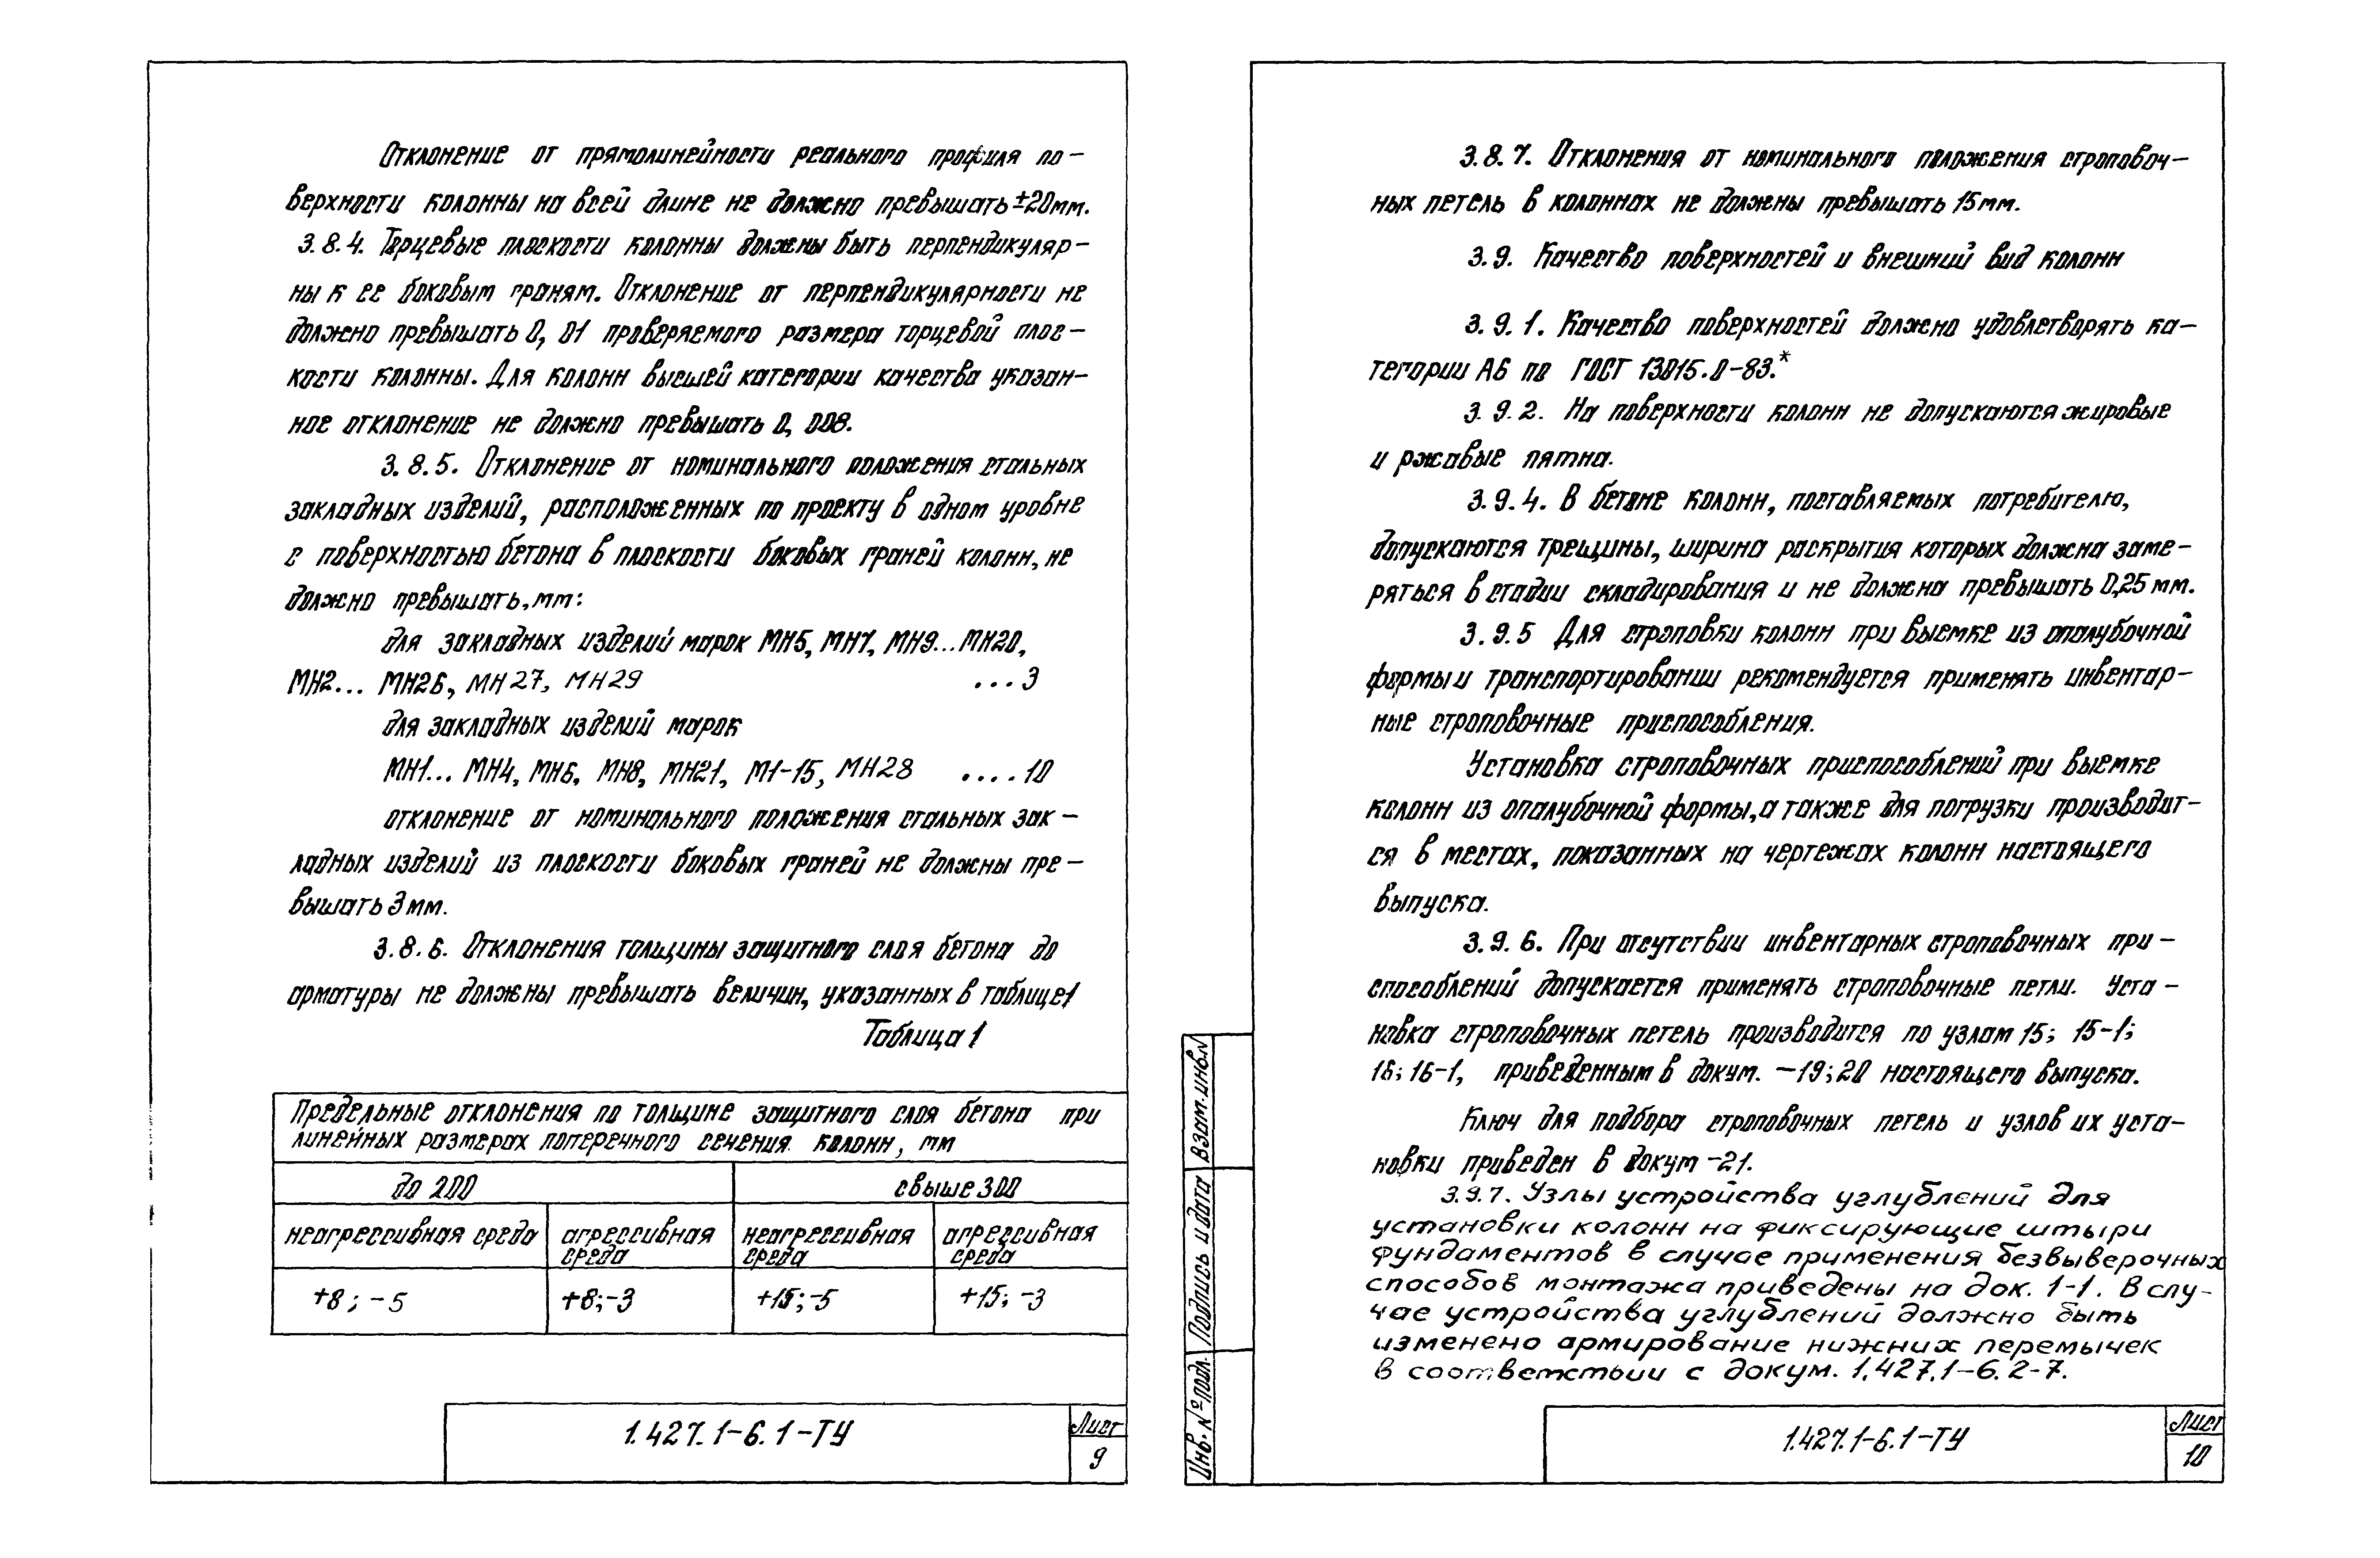 Отклонение от прямолинейности реального профиля по-
верхности колонны на всей длине не должно превышать ±20мм.
3.8.4. Торцевые плоскости колонны должны быть перпендикуляр-
ны к ее боковым граням. Отклонение от перпендикулярности не
должно превышать 0,01 проверяемого размера торцевой плос-
кости колонны. Для колонн высшей категории качества указан-
ное отклонение не должно превышать 0,008.
3.8.5. Отклонение от номинального положения стальных
закладных изделий, расположенных по проекту в одном уровне
с поверхностью бетона в плоскости боковых граней колонн, не
должно превышать, мм:
для закладных изделий марок МН5, МН7, МН9...МН20,
МН2... МН26, МН27, МН29 ...3
для закладных изделий марок
МН1... МН4, МН6, МН8, МН21, М1-15, МН28 ....10
отклонение от номинального положения стальных зак-
ладных изделий из плоскости боковых граней не должны пре-
вышать 3 мм.
3.8.6. Отклонения толщины защитного слоя бетона до
арматуры не должны превышать величин, указанных в таблице1
Таблица 1
Предельные отклонения по толщине защитного слоя бетона при
линейных размерах поперечного сечения колонн, мм
до 200 свыше 300
неагрессивная среда агрессивная среда неагрессивная среда агрессивная среда
+8; -5 +8;-3 +15;-5 +15; -3
1.427.1-6.1-ТУ
Лист
9
3.8.7. Отклонения от номинального положения строповоч-
ных петель в колоннах не должны превышать 15мм.
3.9. Качество поверхностей и внешний вид колонн
3.9.1. Качество поверхностей должно удовлетворять ка-
тегории А6 по ГОСТ 13015.0-83.*
3.9.2. На поверхности колонн не допускаются жировые
и ржавые пятна.
3.9.4. В бетоне колонн, поставляемых потребителю,
допускаются трещины, ширина раскрытия которых должна заме-
ряться в стадии складирования и не должна превышать 0,25 мм.
3.9.5 Для строповки колонн при выемке из опалубочной
формы и транспортировании рекомендуется применять инвентар-
ные строповочные приспособления.
Установка строповочных приспособлений при выемке
колонн из опалубочной формы, а также для погрузки производит-
ся в местах, показанных на чертежах колонн настоящего
выпуска.
3.9.6. При отсутствии инвентарных строповочных при-
способлений допускается применять строповочные петли. Уста-
новка строповочных петель производится по узлам 15; 15-1;
16; 16-1, приведенным в докум. -19;20 настоящего выпуска.
Ключ для подбора строповочных петель и узлов их уста-
новки приведен в докум -21.
3.9.7. Узлы устройства углублений для
установки колонн на фиксирующие штыри
фундаментов в случае применения безвыверочных
способов монтажа приведены на док. 1-1. В слу-
чае устройства углублений должно быть
изменено армирование нижних перемычек
в соответствии с докум. 1.427.1-6.2-7.
Взам.инв.N
Подпись и дата
Инв. № подл.
1.427.1-6.1-ТУ
Лист
10